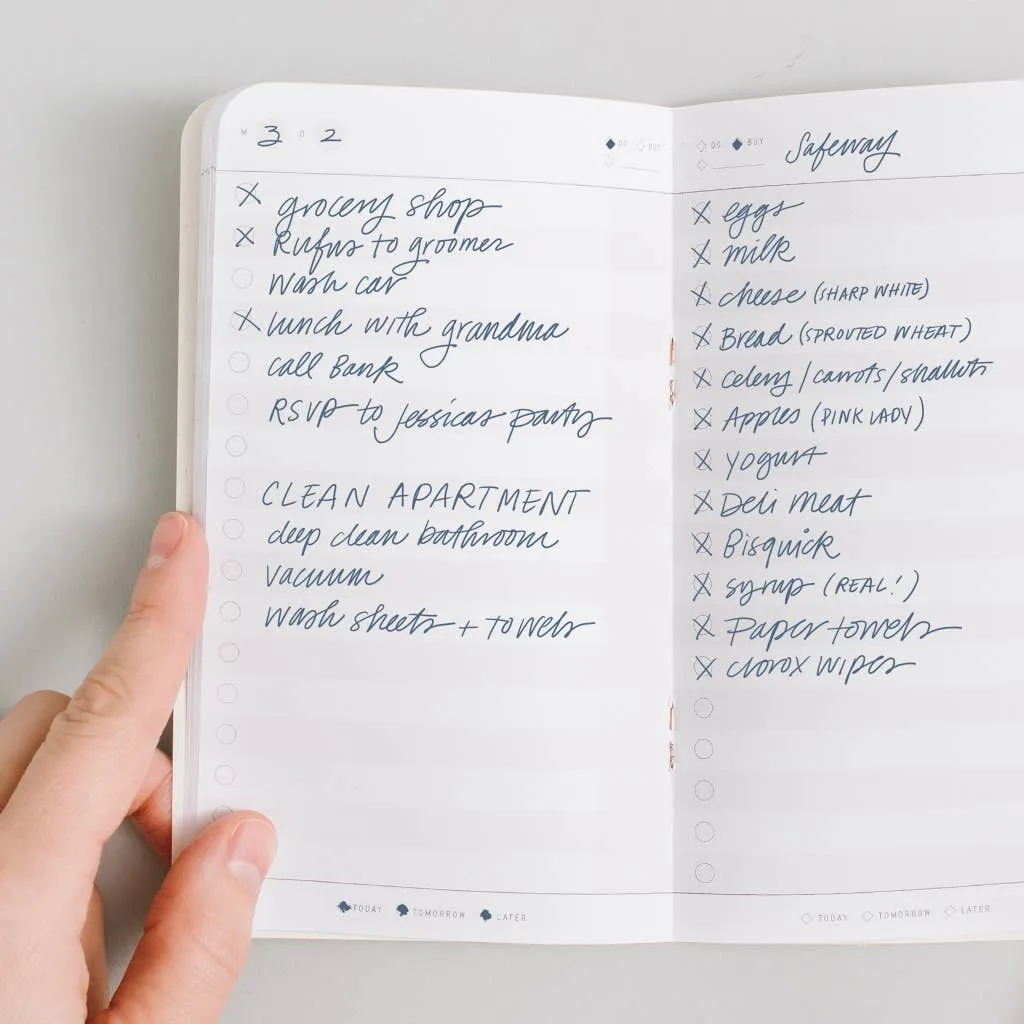 M 3 D 2
DO BUY
grocery shop
Rufus to groomer
Wash car
lunch with grandma
call Bank
RSVP to Jessicas party
CLEAN APARTMENT
deep clean bathroom
vacuum
wash sheets + towels
TODAY TOMORROW LATER
DO BUY Safeway
eggs
milk
cheese (SHARP WHITE)
Bread (SPROUTED WHEAT)
Celery / carrots / shallots
Apples (PINK LADY)
yogurt
Deli Meat
Bisquick
syrup (REAL!)
Paper towels
clorox wipes
TODAY TOMORROW LATER